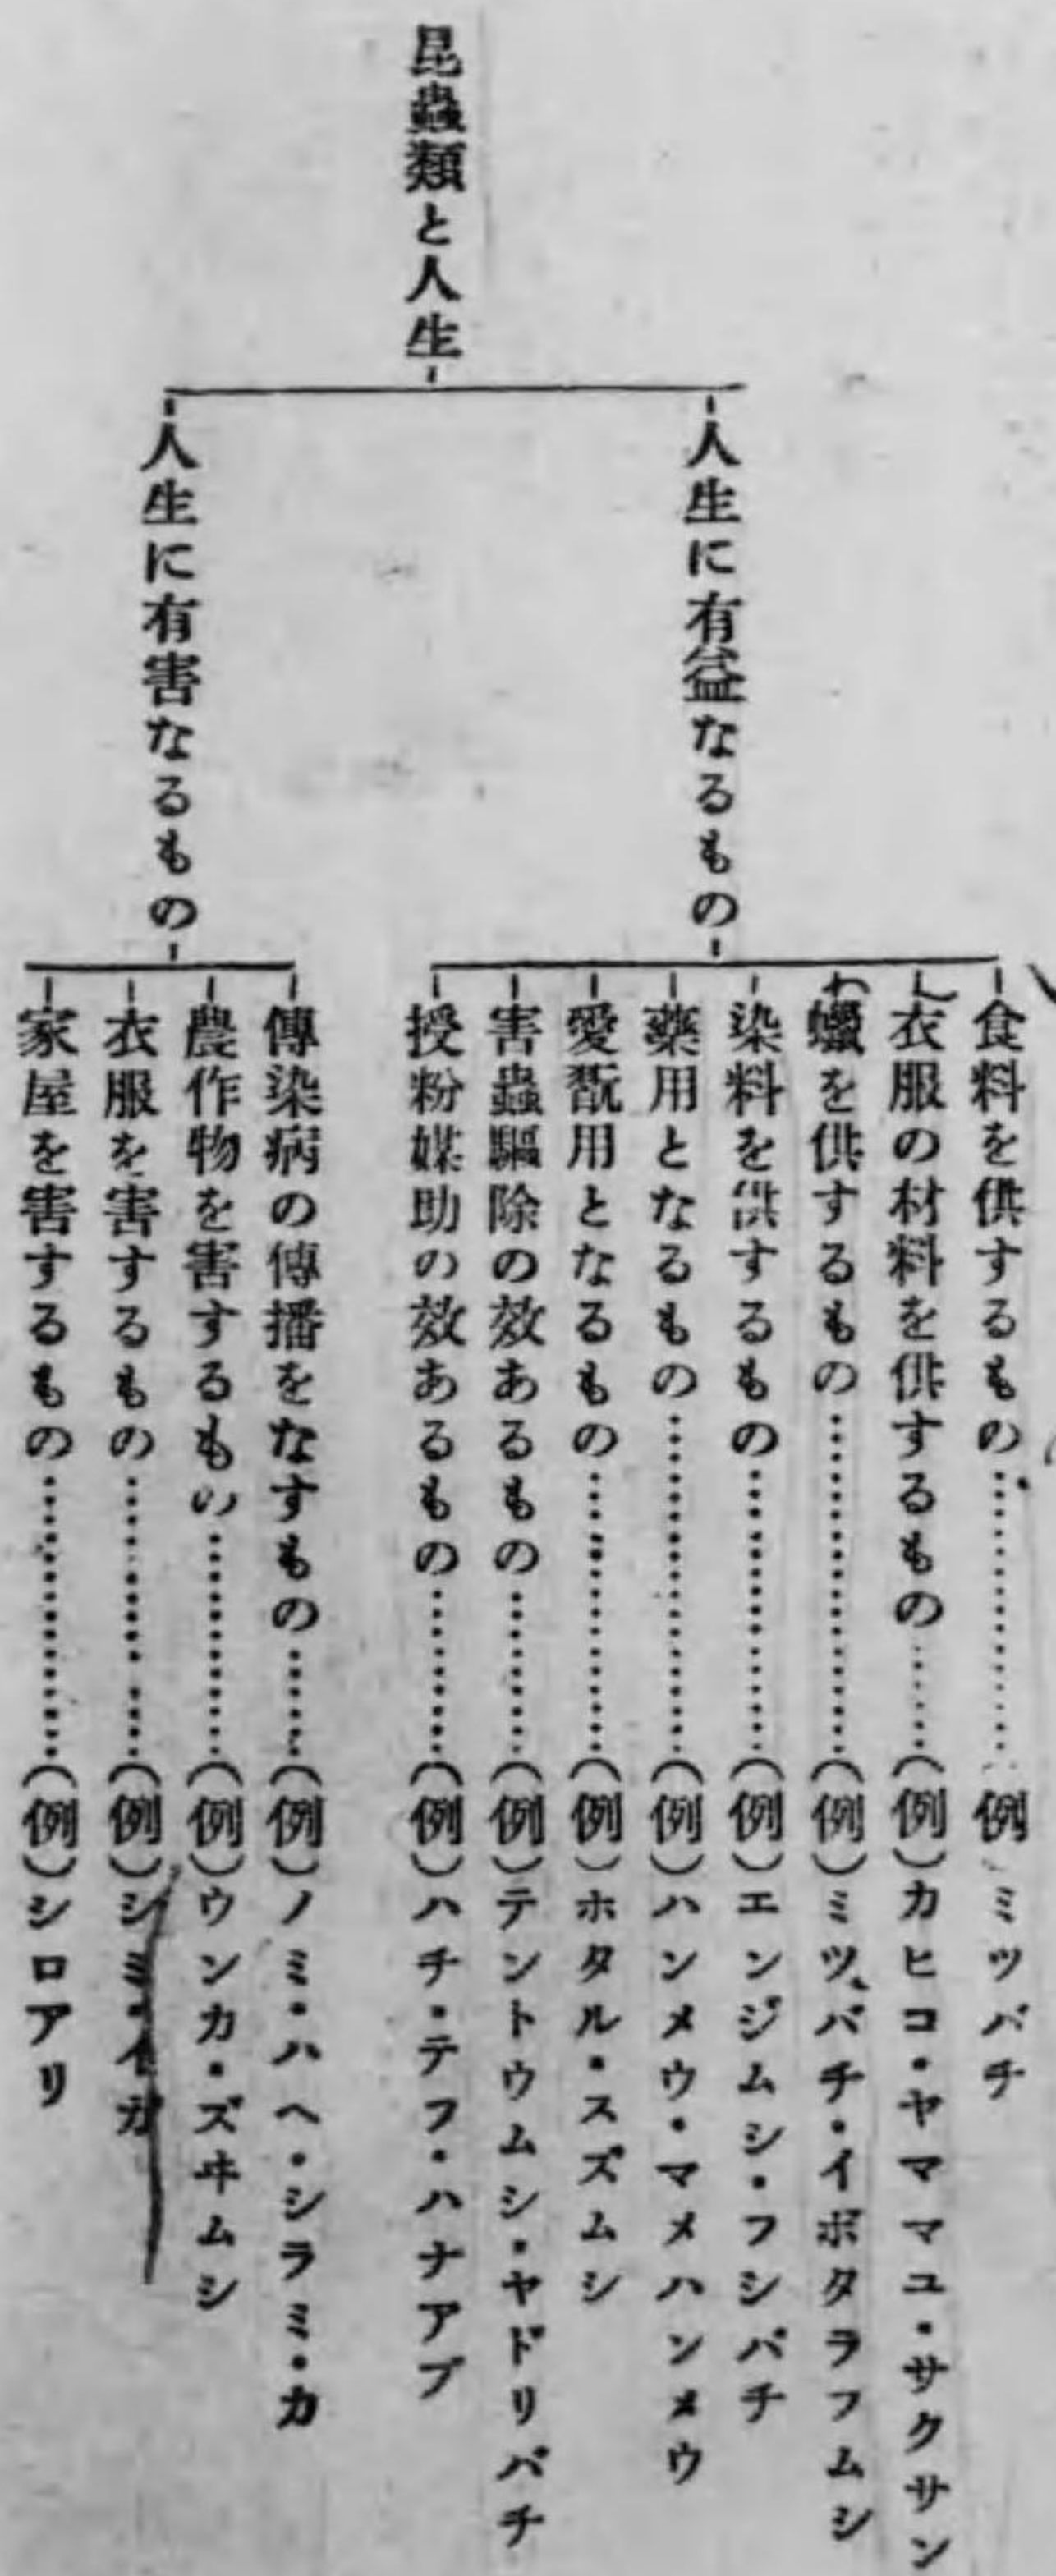 昆蟲類と人生
人生に有益なるもの
食料を供するもの…………(例)ミツバチ
衣服の材料を供するもの……(例)カヒコ・ヤママユ・サクサン
蠟を供するもの……………(例)ミツバチ・イボタラフムシ
染料を供するもの…………(例)エンジムシ・フシバチ
藥用となるもの……………(例)ハンメウ・マメハンメウ
愛翫用となるもの…………(例)ホタル・スズムシ
害蟲驅除の效あるもの………(例)テントウムシ・ヤドリバチ
授粉媒助の效あるもの………(例)ハチ・テフ・ハナアブ
人生に有害なるもの
傳染病の傳播をなすもの……(例)ノミ・ハヘ・シラミ・カ
農作物を害するもの…………(例)ウンカ・ズヰムシ
衣服を害するもの…………(例)シミ・イガ
家屋を害するもの…………(例)シロアリ